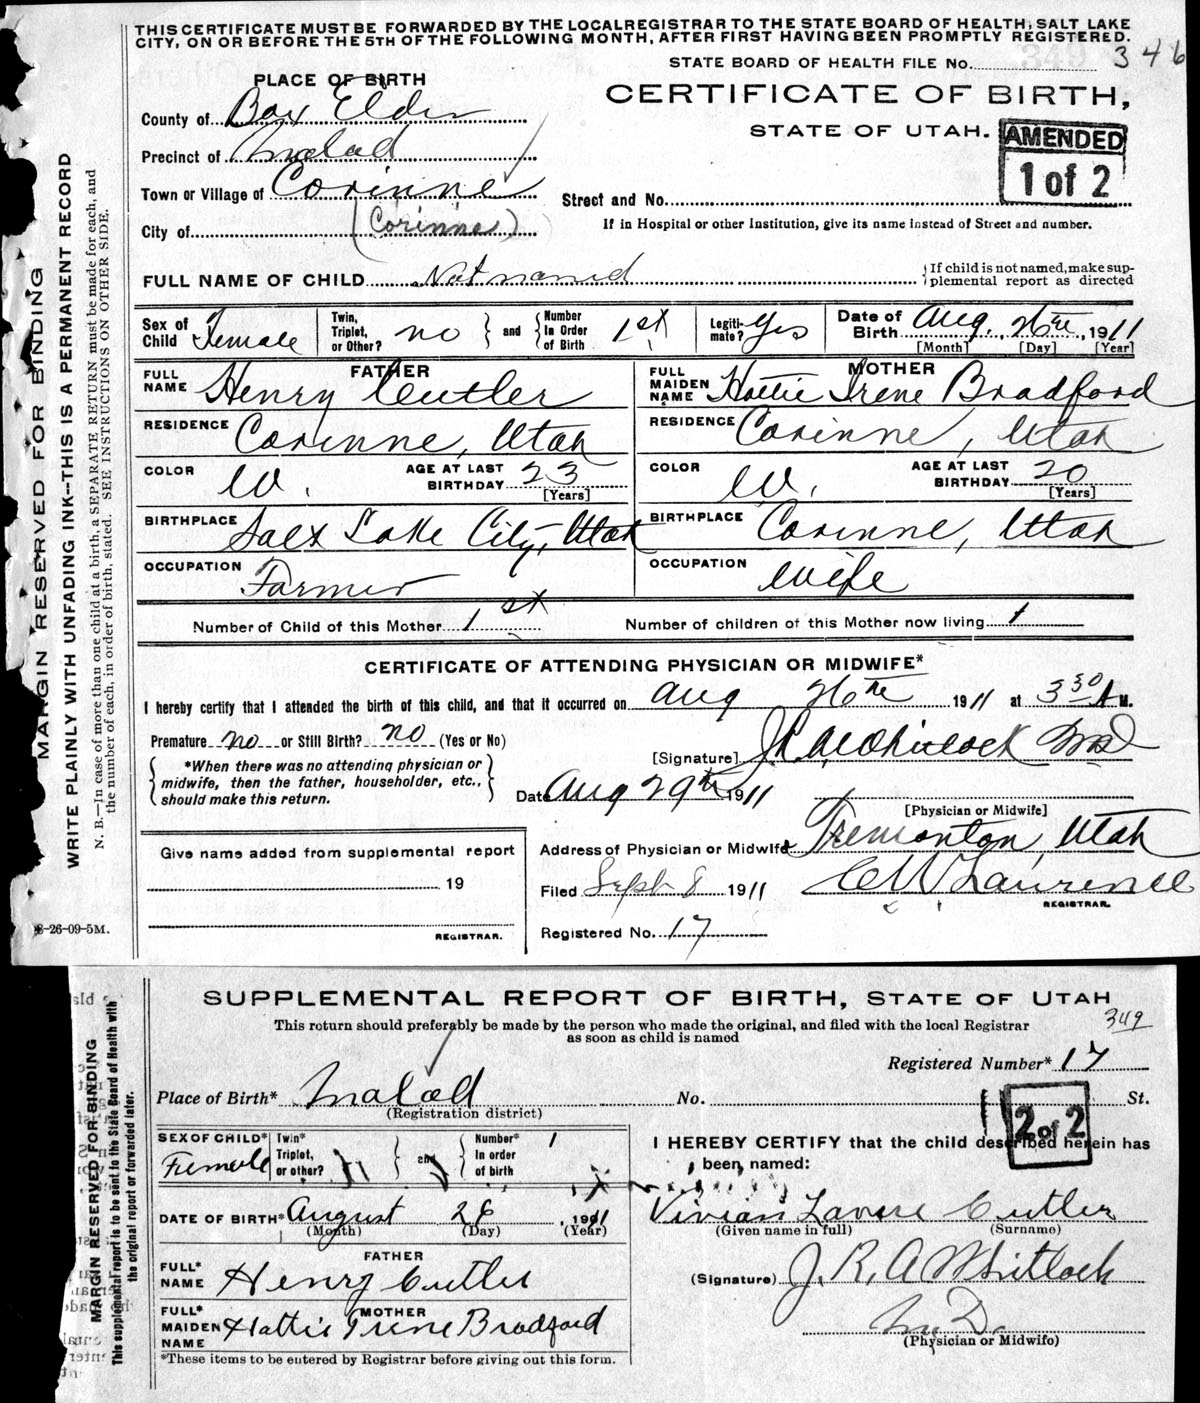 THIS CERTIFICATE MUST BE FORWARDED BY THE LOCAL REGISTRAR TO THE STATE BOARD OF HEALTH, SALT LAKE
CITY, ON OR BEFORE THE 5TH OF THE FOLLOWING MONTH, AFTER FIRST HAVING BEEN PROMPTLY REGISTERED.
STATE BOARD OF HEALTH FILE No. 346
PLACE OF BIRTH
CERTIFICATE OF BIRTH,
STATE OF UTAH.
AMENDED
1 of 2
County of Box Elder
Precinct of Malad
Town or Village of Corinne
Street and No.
City of (Corinne)
If in Hospital or other Institution, give its name instead of Street and number.
FULL NAME OF CHILD Not named
{ If child is not named, make sup-
plemental report as directed
Sex of Child Female
Twin, Triplet, or Other? no } and { Number In Order of Birth 1st
Legiti-mate? Yes
Date of Birth Aug. 26th, 1911
[Month] [Day] [Year]
FATHER
FULL NAME Henry Cutler
RESIDENCE Corinne, Utah
COLOR W. AGE AT LAST BIRTHDAY 23 [Years]
BIRTHPLACE Salt Lake City, Utah
OCCUPATION Farmer
MOTHER
FULL MAIDEN NAME Hattie Irene Bradford
RESIDENCE Corinne, Utah
COLOR W. AGE AT LAST BIRTHDAY 20 [Years]
BIRTHPLACE Corinne, Utah
OCCUPATION Wife
Number of Child of this Mother 1st Number of children of this Mother now living 1
CERTIFICATE OF ATTENDING PHYSICIAN OR MIDWIFE*
I hereby certify that I attended the birth of this child, and that it occurred on Aug 26th 1911 at 3 30 A M.
Premature no or Still Birth? no (Yes or No)
{ *When there was no attending physician or
midwife, then the father, householder, etc.,
should make this return. }
[Signature] J.R.A. Whitlock MD
Date Aug 29th 1911
[Physician or Midwife]
Address of Physician or Midwife Tremonton, Utah
Give name added from supplemental report
19
REGISTRAR.
Filed Sept 8 1911 C W Laurence
REGISTRAR.
Registered No. 17
MARGIN RESERVED FOR BINDING
WRITE PLAINLY WITH UNFADING INK--THIS IS A PERMANENT RECORD
N. B.—In case of more than one child at a birth, a SEPARATE RETURN must be made for each, and
the number of each, in order of birth, stated. SEE INSTRUCTIONS ON OTHER SIDE.
8-26-09-5M.
SUPPLEMENTAL REPORT OF BIRTH, STATE OF UTAH
This return should preferably be made by the person who made the original, and filed with the local Registrar
as soon as child is named
349
Registered Number* 17
Place of Birth* Malad No. St.
(Registration district)
2 of 2
SEX OF CHILD* Female
Twin* Triplet, or other? } and { Number* In order of birth 1
DATE OF BIRTH* August 26, 1911
(Month) (Day) (Year)
FATHER
FULL* NAME Henry Cutler
MOTHER
FULL* MAIDEN NAME Hattie Irene Bradford
*These items to be entered by Registrar before giving out this form.
I HEREBY CERTIFY that the child described herein has
been named:
Vivian Cutler
(Given name in full) (Surname)
(Signature) J. R. A Whitlock
M.D.
(Physician or Midwife)
MARGIN RESERVED FOR BINDING
This supplemental report is to be sent to the State Board of Health with
the original report or forwarded later.